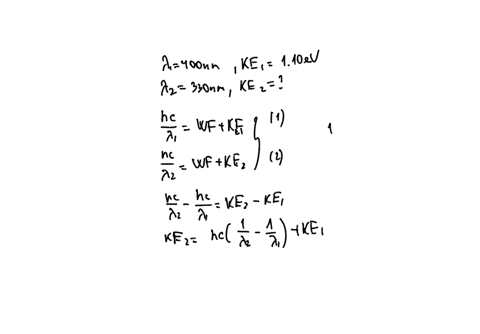 λ₁=400nm , KE₁= 1.10eV
λ₂= 330nm, KE₂=?
hc/λ₁ = WF+KE₁ (1)
hc/λ₂ = WF+KE₂ (2)
1
hc/λ₂ - hc/λ₁ = KE₂ - KE₁
KE₂= hc(1/λ₂ - 1/λ₁)+KE₁